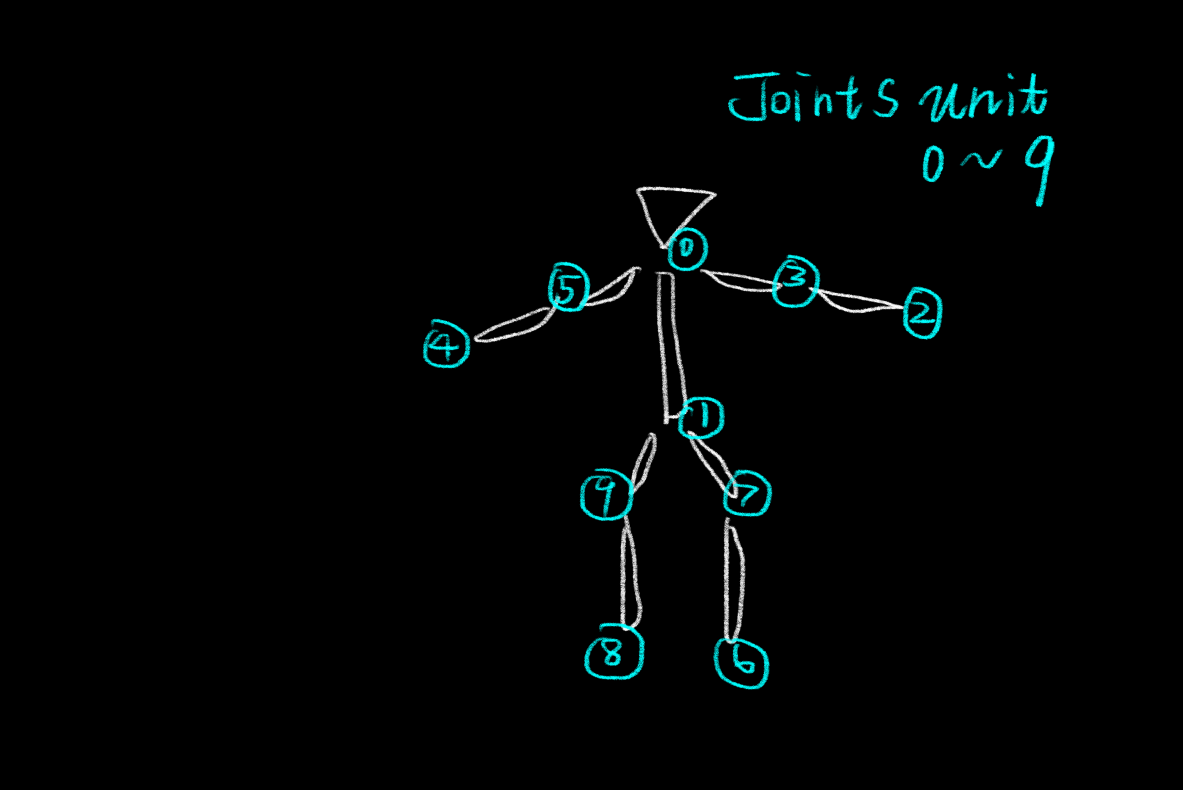 Joints unit
0 ~ 9
0
5
3
2
4
1
9
7
8
6